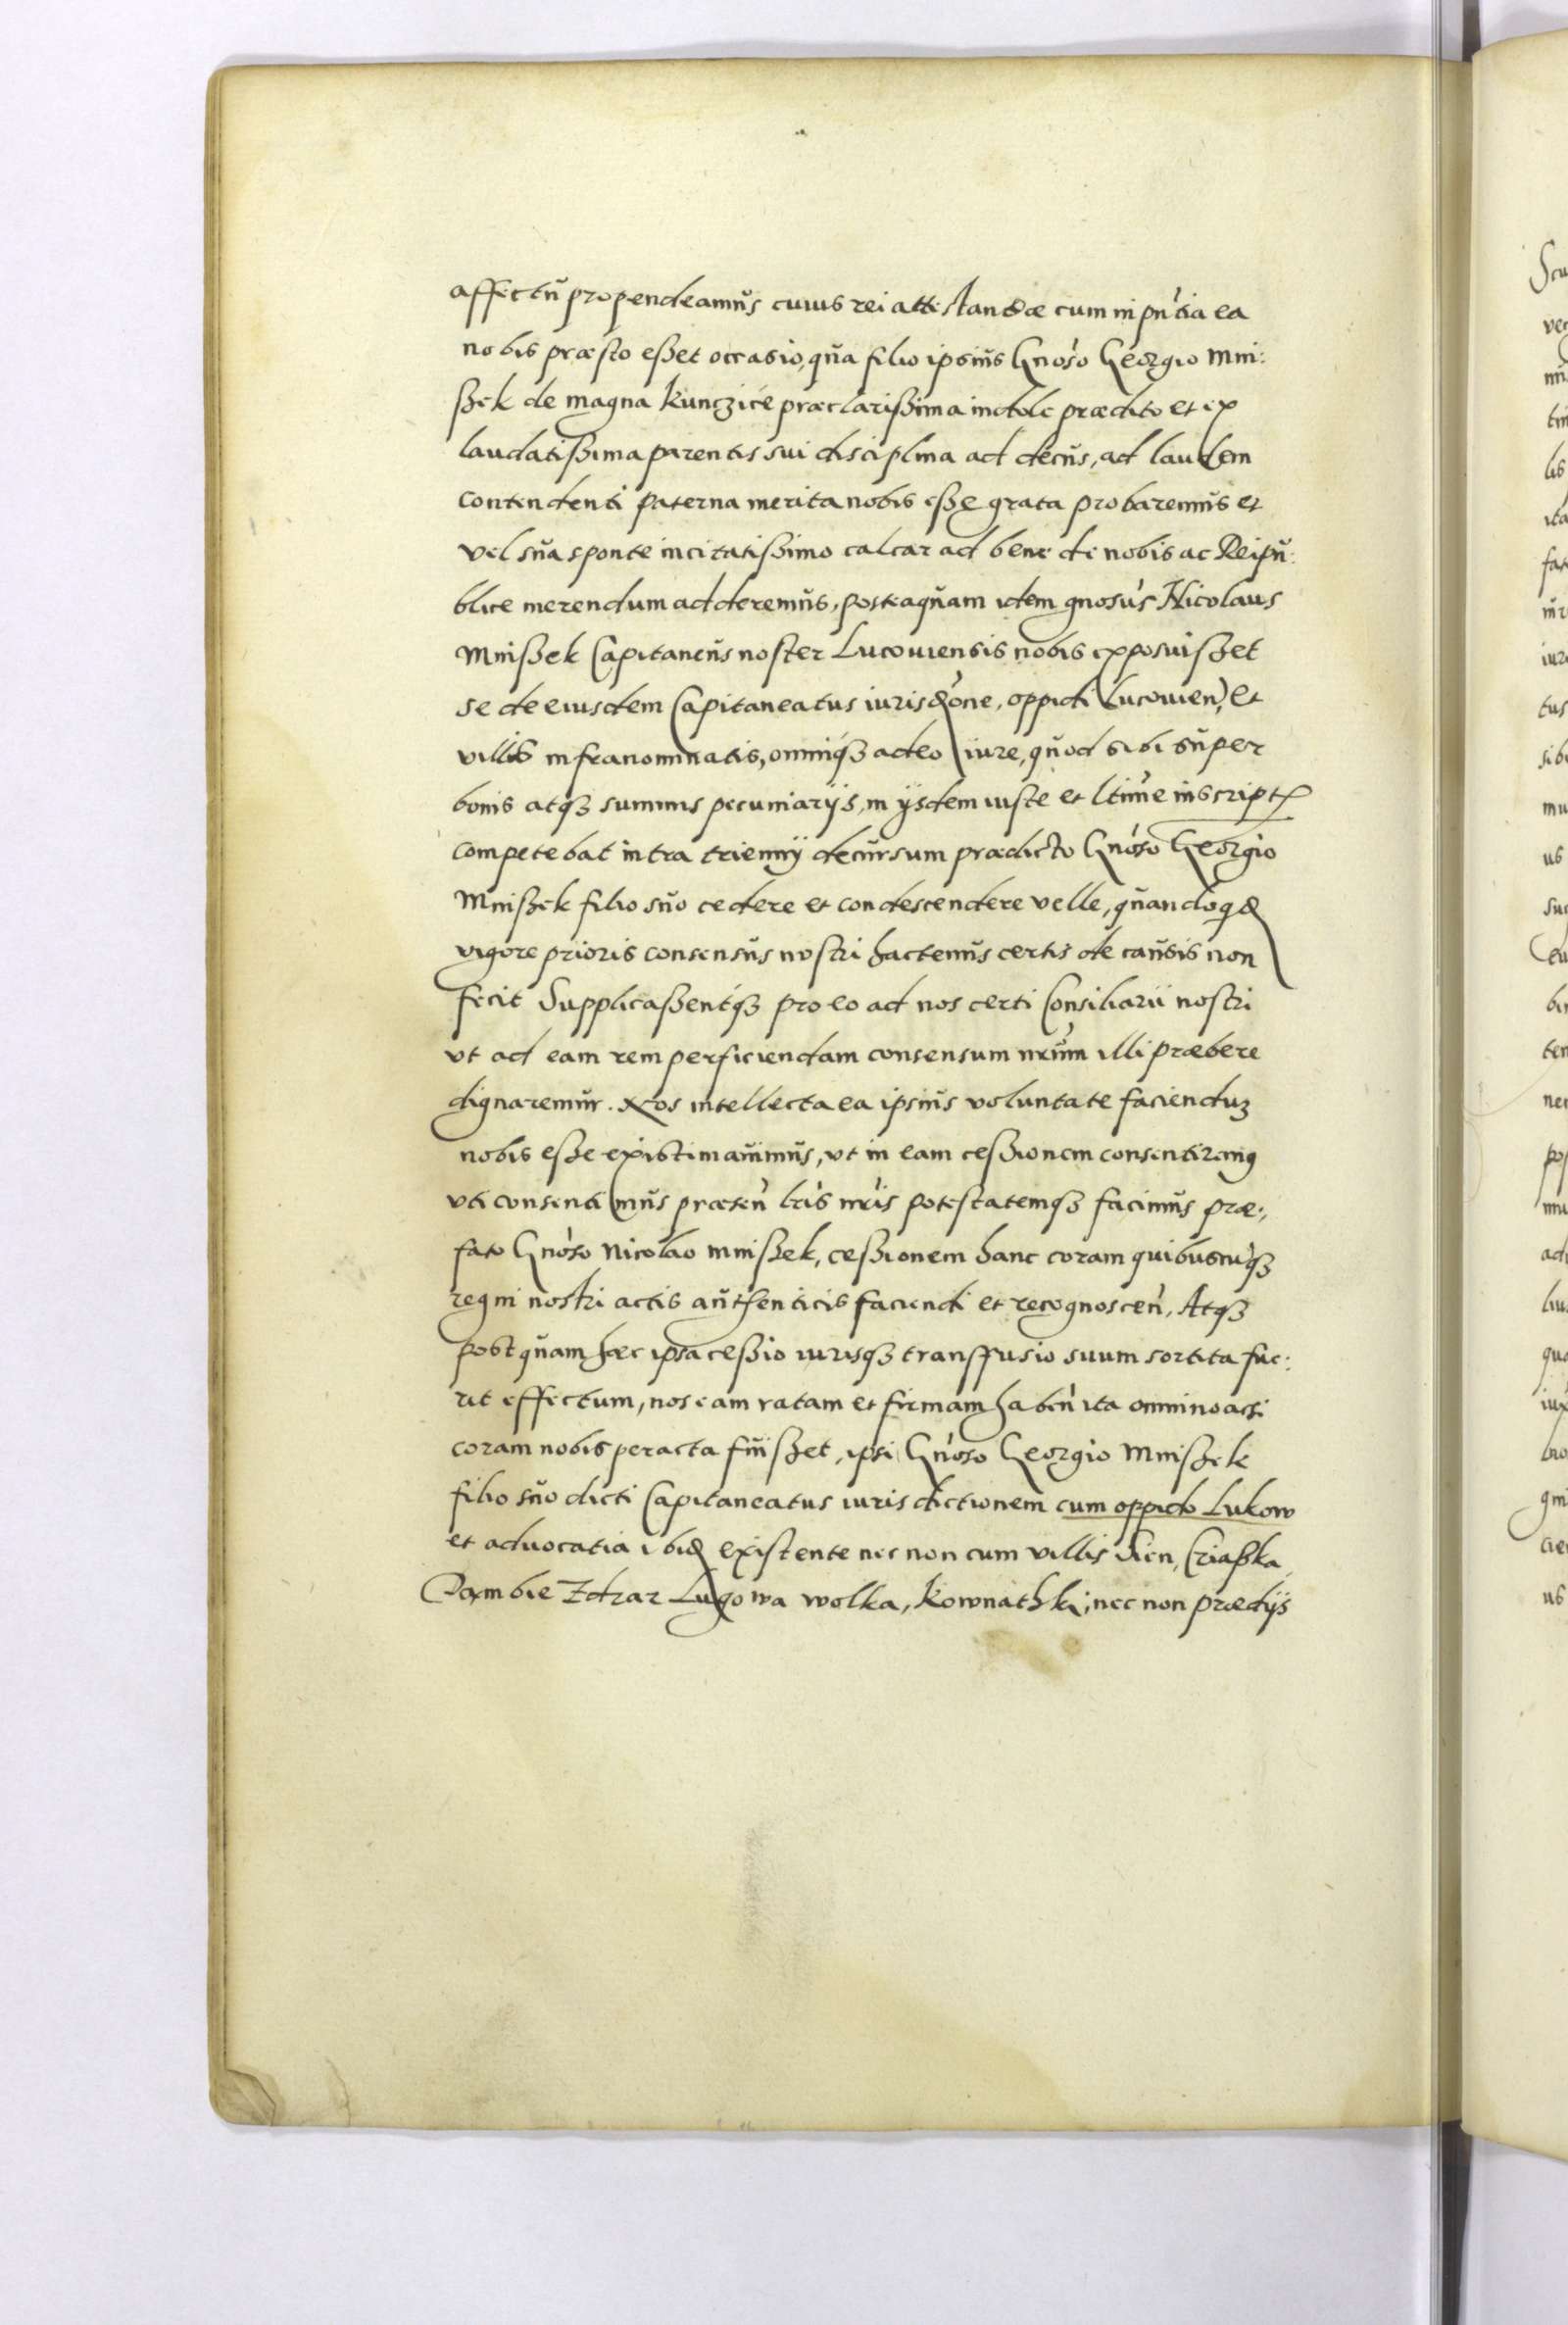 affectu propendeamus cuius rei attestandæ cum in pñtia ea
nobis præsto eßet occasio, qua filio ipsius Gnoso Georgio Mni:
ßek de magna Kunczice præclarißima indole prædito et ex
laudatißima parentis sui disciplina ad decus, ad laudem
contendenti paterna merita nobis eße grata probaremus et
vel sua sponte incitatißimo calcar ad bene de nobis ac Reipu:
blice merendum adderemus, posteaquam idem gnosus Nicolaus
Mnißek Capitaneus noster Lucouiensis nobis exposuißet
se de eiusdem Capitaneatus iurisdõne, oppidi Lucouien, et
villis infranominatis, omniqʒ adeo iure, quod sibi super
bonis atqʒ summis pecuniarijs, in ijsdem iuste et ltime inscript
competebat intra triennij decursum prædicto Gnoso Georgio
Mnißek filio suo cedere et condescendere velle, quandoqd
vigore prioris consensus nostri hactenus certis de causis non
fecit Supplicaßentqʒ pro eo ad nos certi Consiliarii nostri
vt ad eam rem perficiendam consensum nrum illi præbere
dignaremur. Nos intellecta ea ipsius voluntate facienduʒ
nobis eße existimauimus, vt in eam ceßionem consentiremꝰ
vti consentimus præsen lris nris potestatemqʒ facimus præ:,
fato Gnoso Nicolao Mnißek, ceßionem hanc coram quibuscuqʒ
regni nostri actis authenticis faciendi et recognoscen, Atqʒ
postquam hæc ipsa ceßio iurisqʒ transffusio suum sortita fue:
rit effectum, nos eam ratam et firmam haben ita omnino acsi
coram nobis peracta fuißet, ipsi Gnoso Georgio Mnißek
filio suo dicti Capitaneatus iurisdictionem cum oppido Lukow
et aduocatia ibid existente nec non cum villis Sien, Criaßka
Dambie Zdzar Lugowa wolka, Kownathki, nec non prædijs